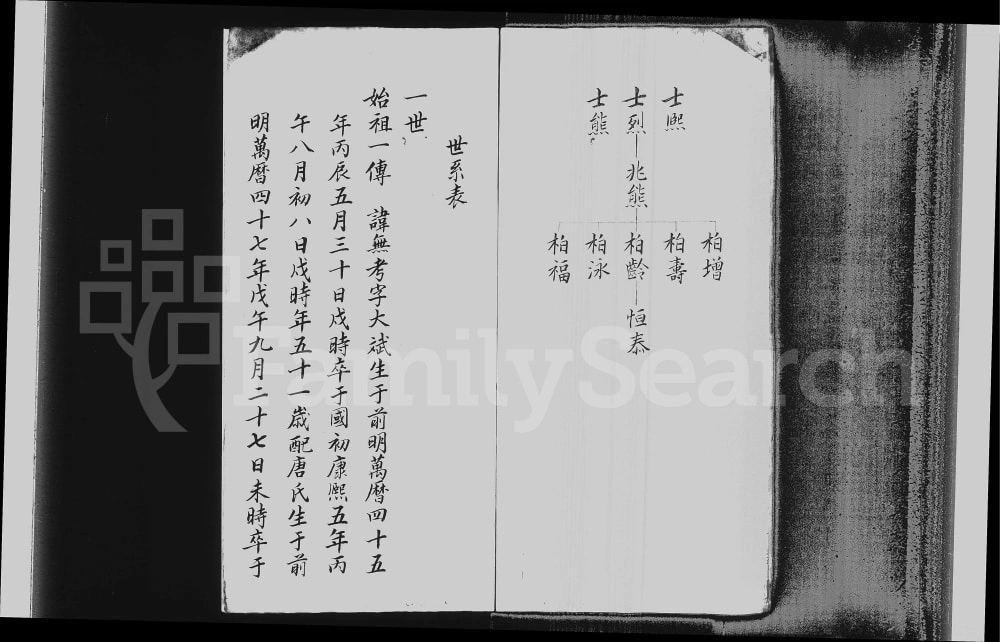 士熙
士烈 兆熊
士熊
柏增
柏壽
柏齡 恒泰
柏泳
柏福
世系表
一世
始祖一傳 諱無考字大斌生于前明萬曆四十五
年丙辰五月三十日戌時卒于國初康熙五年丙
午八月初八日戌時年五十一歲配唐氏生于前
明萬曆四十七年戊午九月二十七日未時卒于
FamilySearch